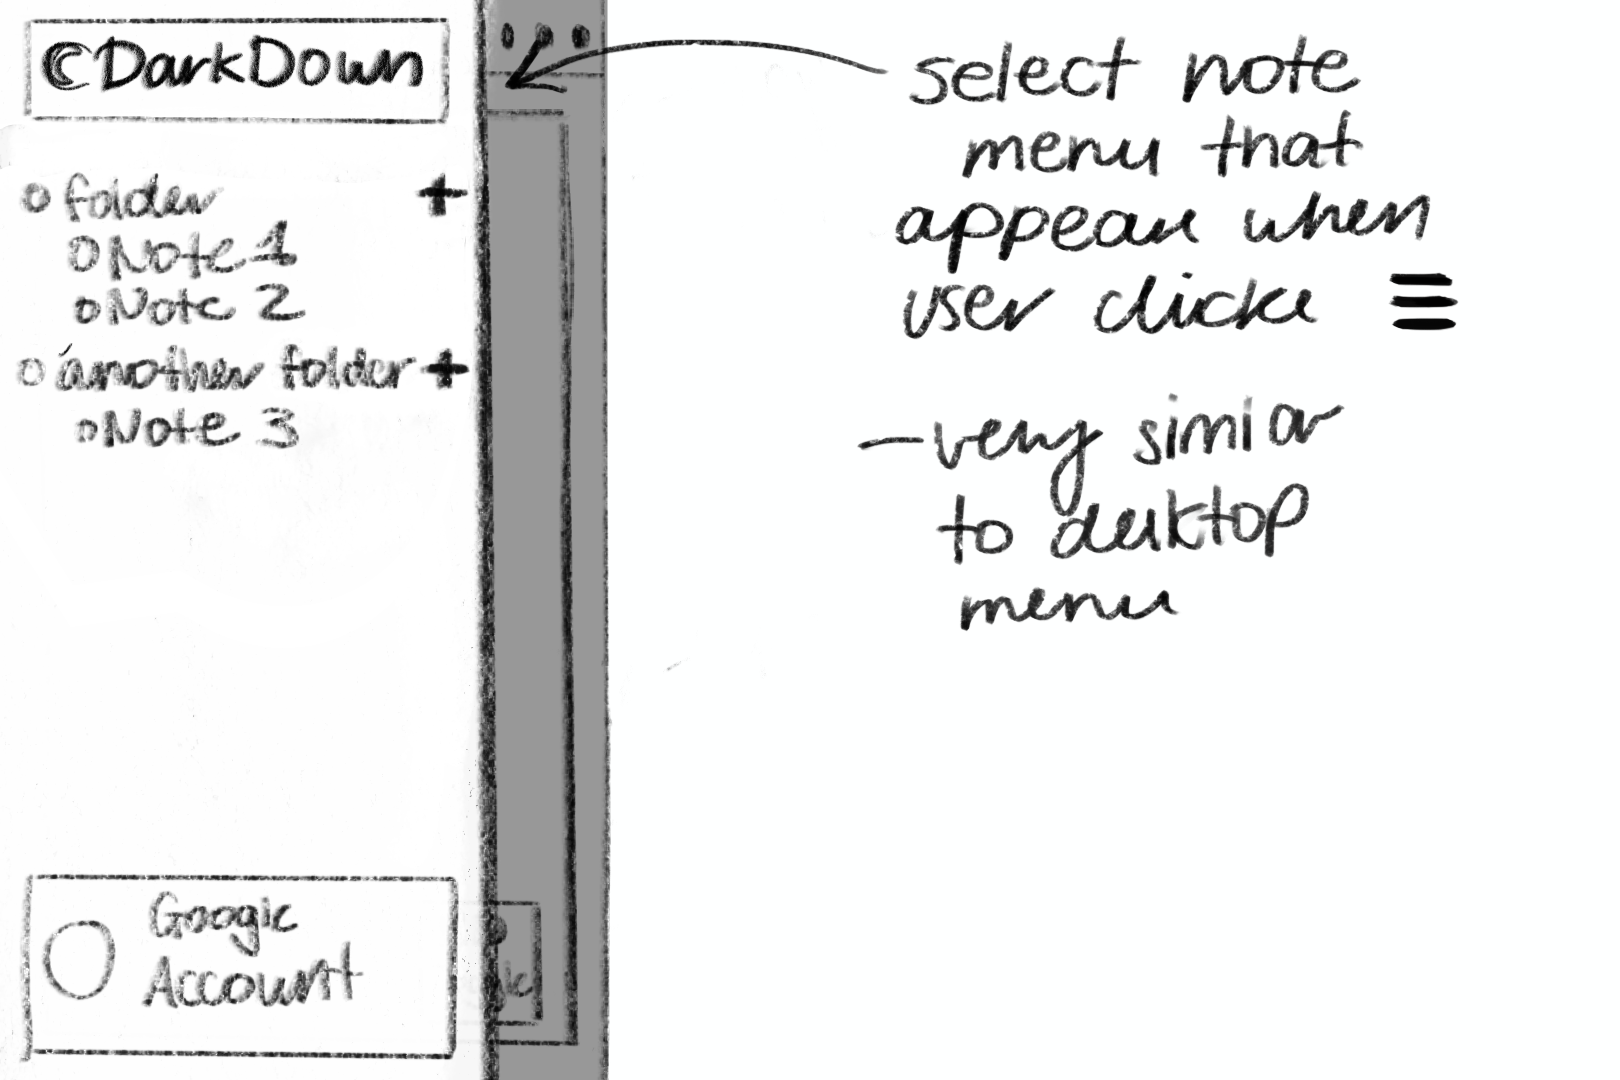 DarkDown
folder +
Note 1
Note 2
another folder +
Note 3
Google
Account
select note
menu that
appears when
user clicks ≡
- very similar
to desktop
menu